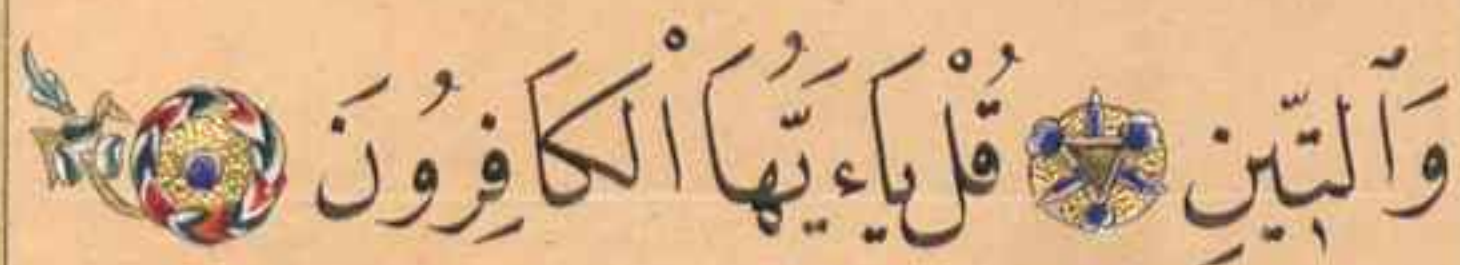 وَٱلتِّينِ قُلْ يَاءَيُّهَا ٱلْكَافِرُونَ